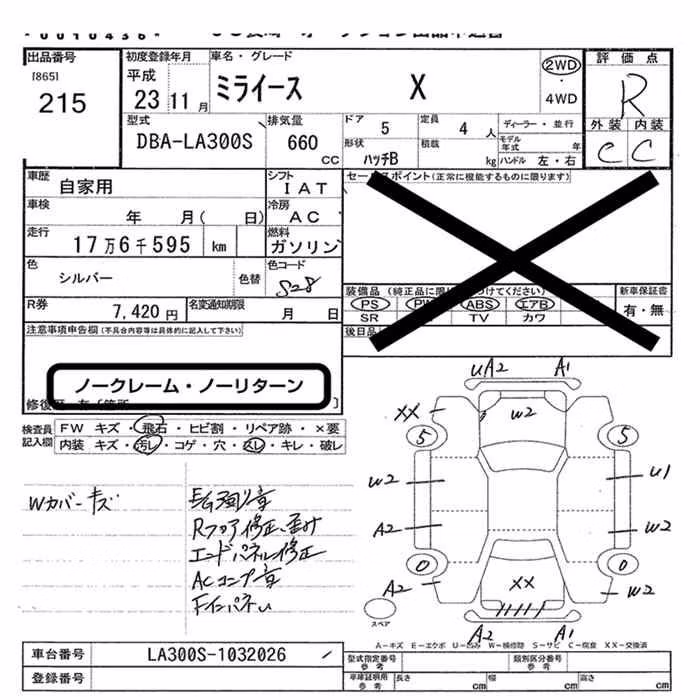 出品番号
[865]
215
初度登録年月
平成
23 11 月
車名・グレード
ミライース X
2WD
・
4WD
評価点
R
外装 内装
C C
型式
DBA-LA300S
排気量
660 CC
ドア 5
定員 4 人
ディーラー・並行
モデル年式 年
形状 ハッチB
積載 kg
ハンドル 左・右
車歴 自家用
シフト I A T
車検 年 月( 日)
冷房 A C
走行 17万6千595 km
燃料 ガソリン
色 シルバー 色替
色コード S28
R券 7,420 円
名変通知期限 月 日
セールスポイント(正常に機能するものに限ります)
装備品
PS PW ABS エアB
SR TV カワ
新車保証書
有・無
後日品
注意事項申告欄(不具合内容等は具体的に記入して下さい)
ノークレーム・ノーリターン
検査員記入欄
FW キズ・飛石・ヒビ割・リペア跡・×要
内装 キズ・汚レ・コゲ・穴・スレ・キレ・破レ
Wカバーキズ
Rフロア修正、歪み
エンドパネル修正
ACコンプ音
uA2 A1
XX W2
5 5
W2 U1
A2 W2
0 0
A2 XX W2
A2 A1
スペア
A-キズ E-エクボ U-凹み W-補修跡 S-サビ C-腐食 XX-交換済
車台番号 LA300S-1032026
登録番号
型式指定番号 類別区分番号
車庫証明用参考 長さ cm 幅 cm 高さ cm